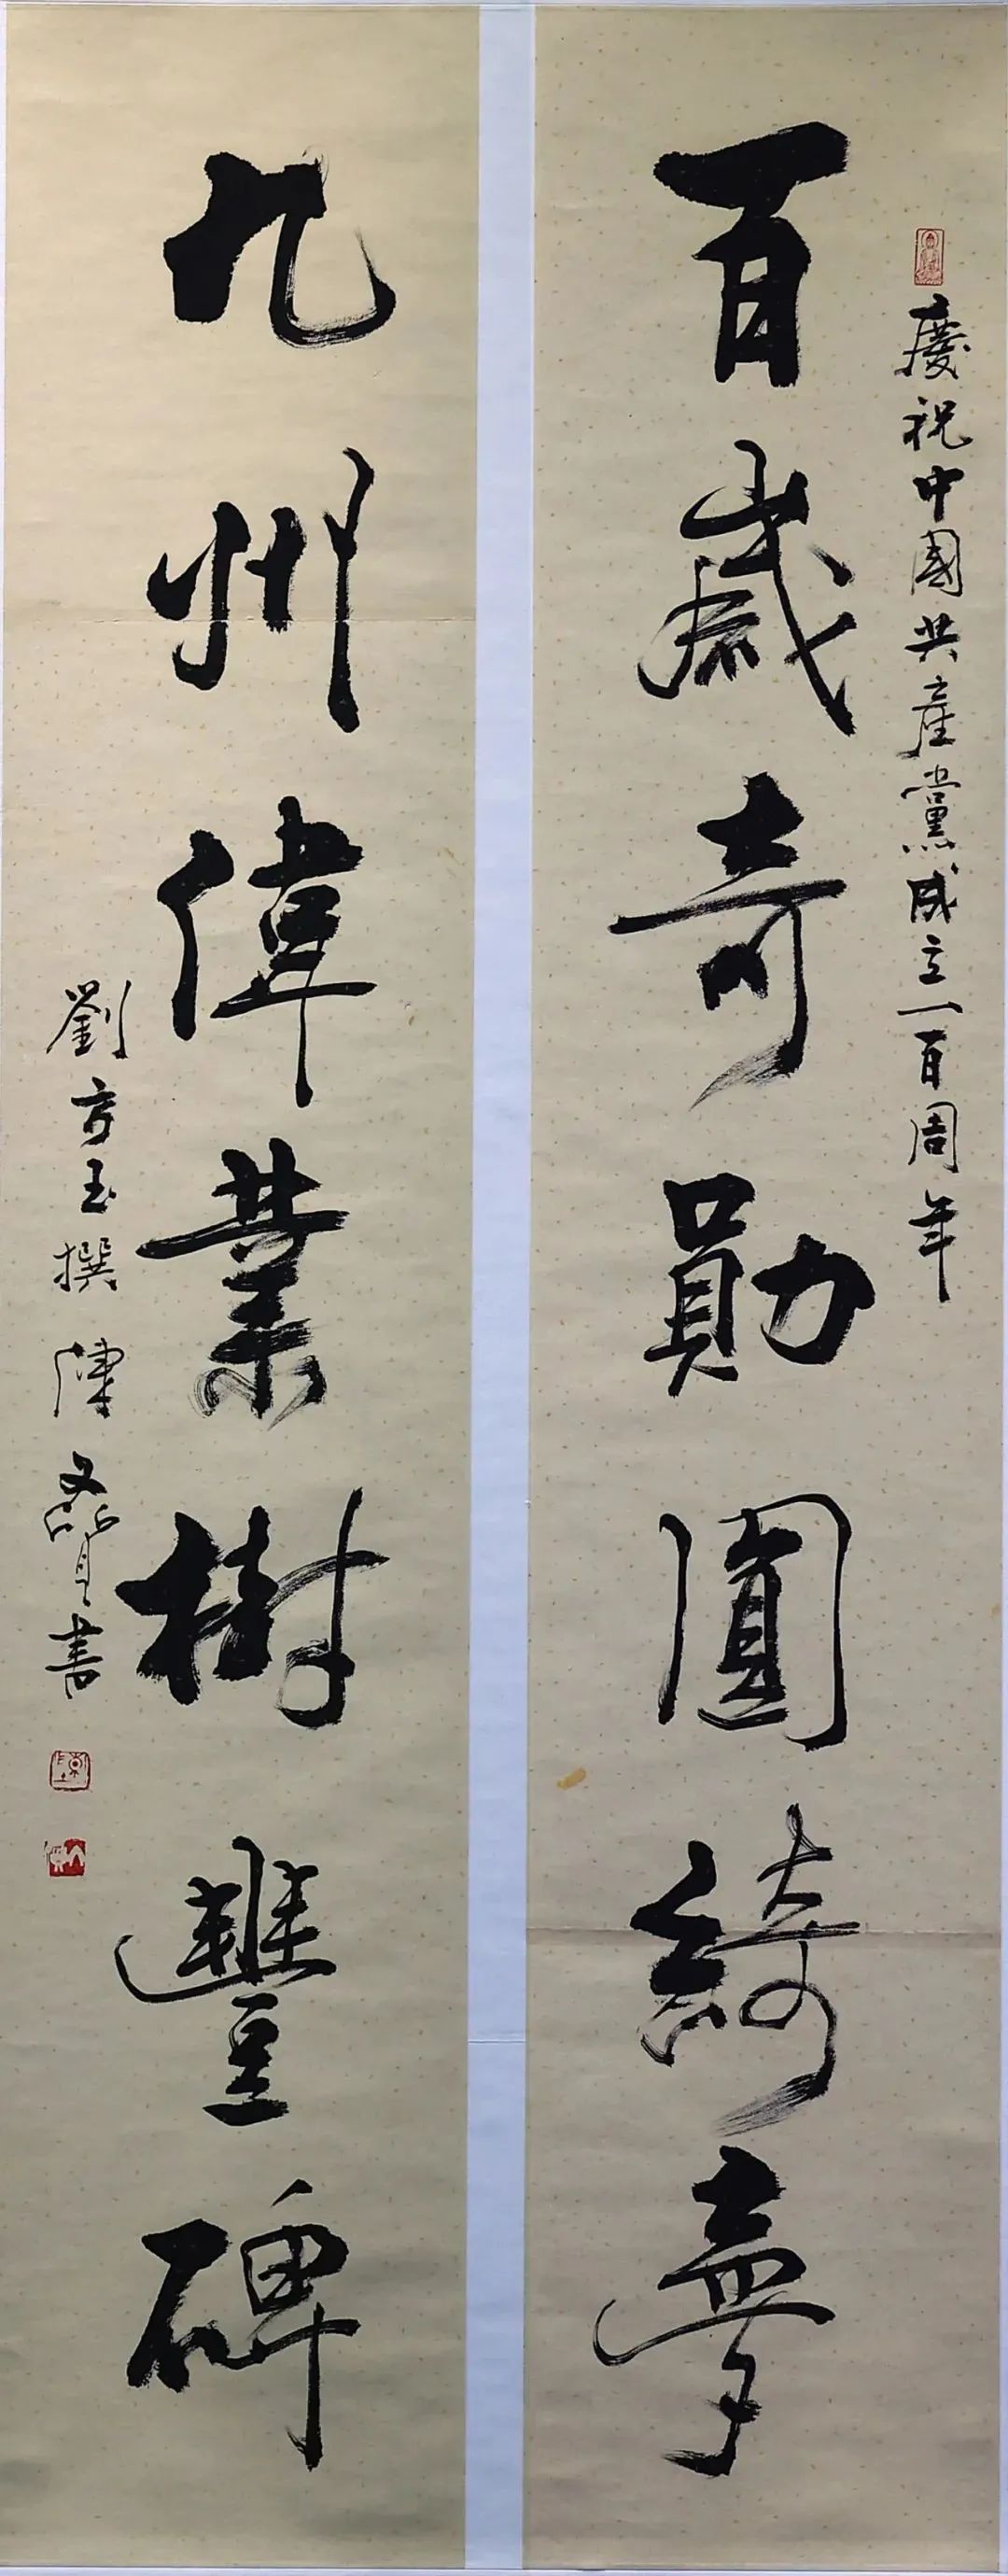 慶祝中國共產黨成立一百周年
百歲奇勛圓綺夢
九州偉業樹豐碑
劉方玉撰 陳書